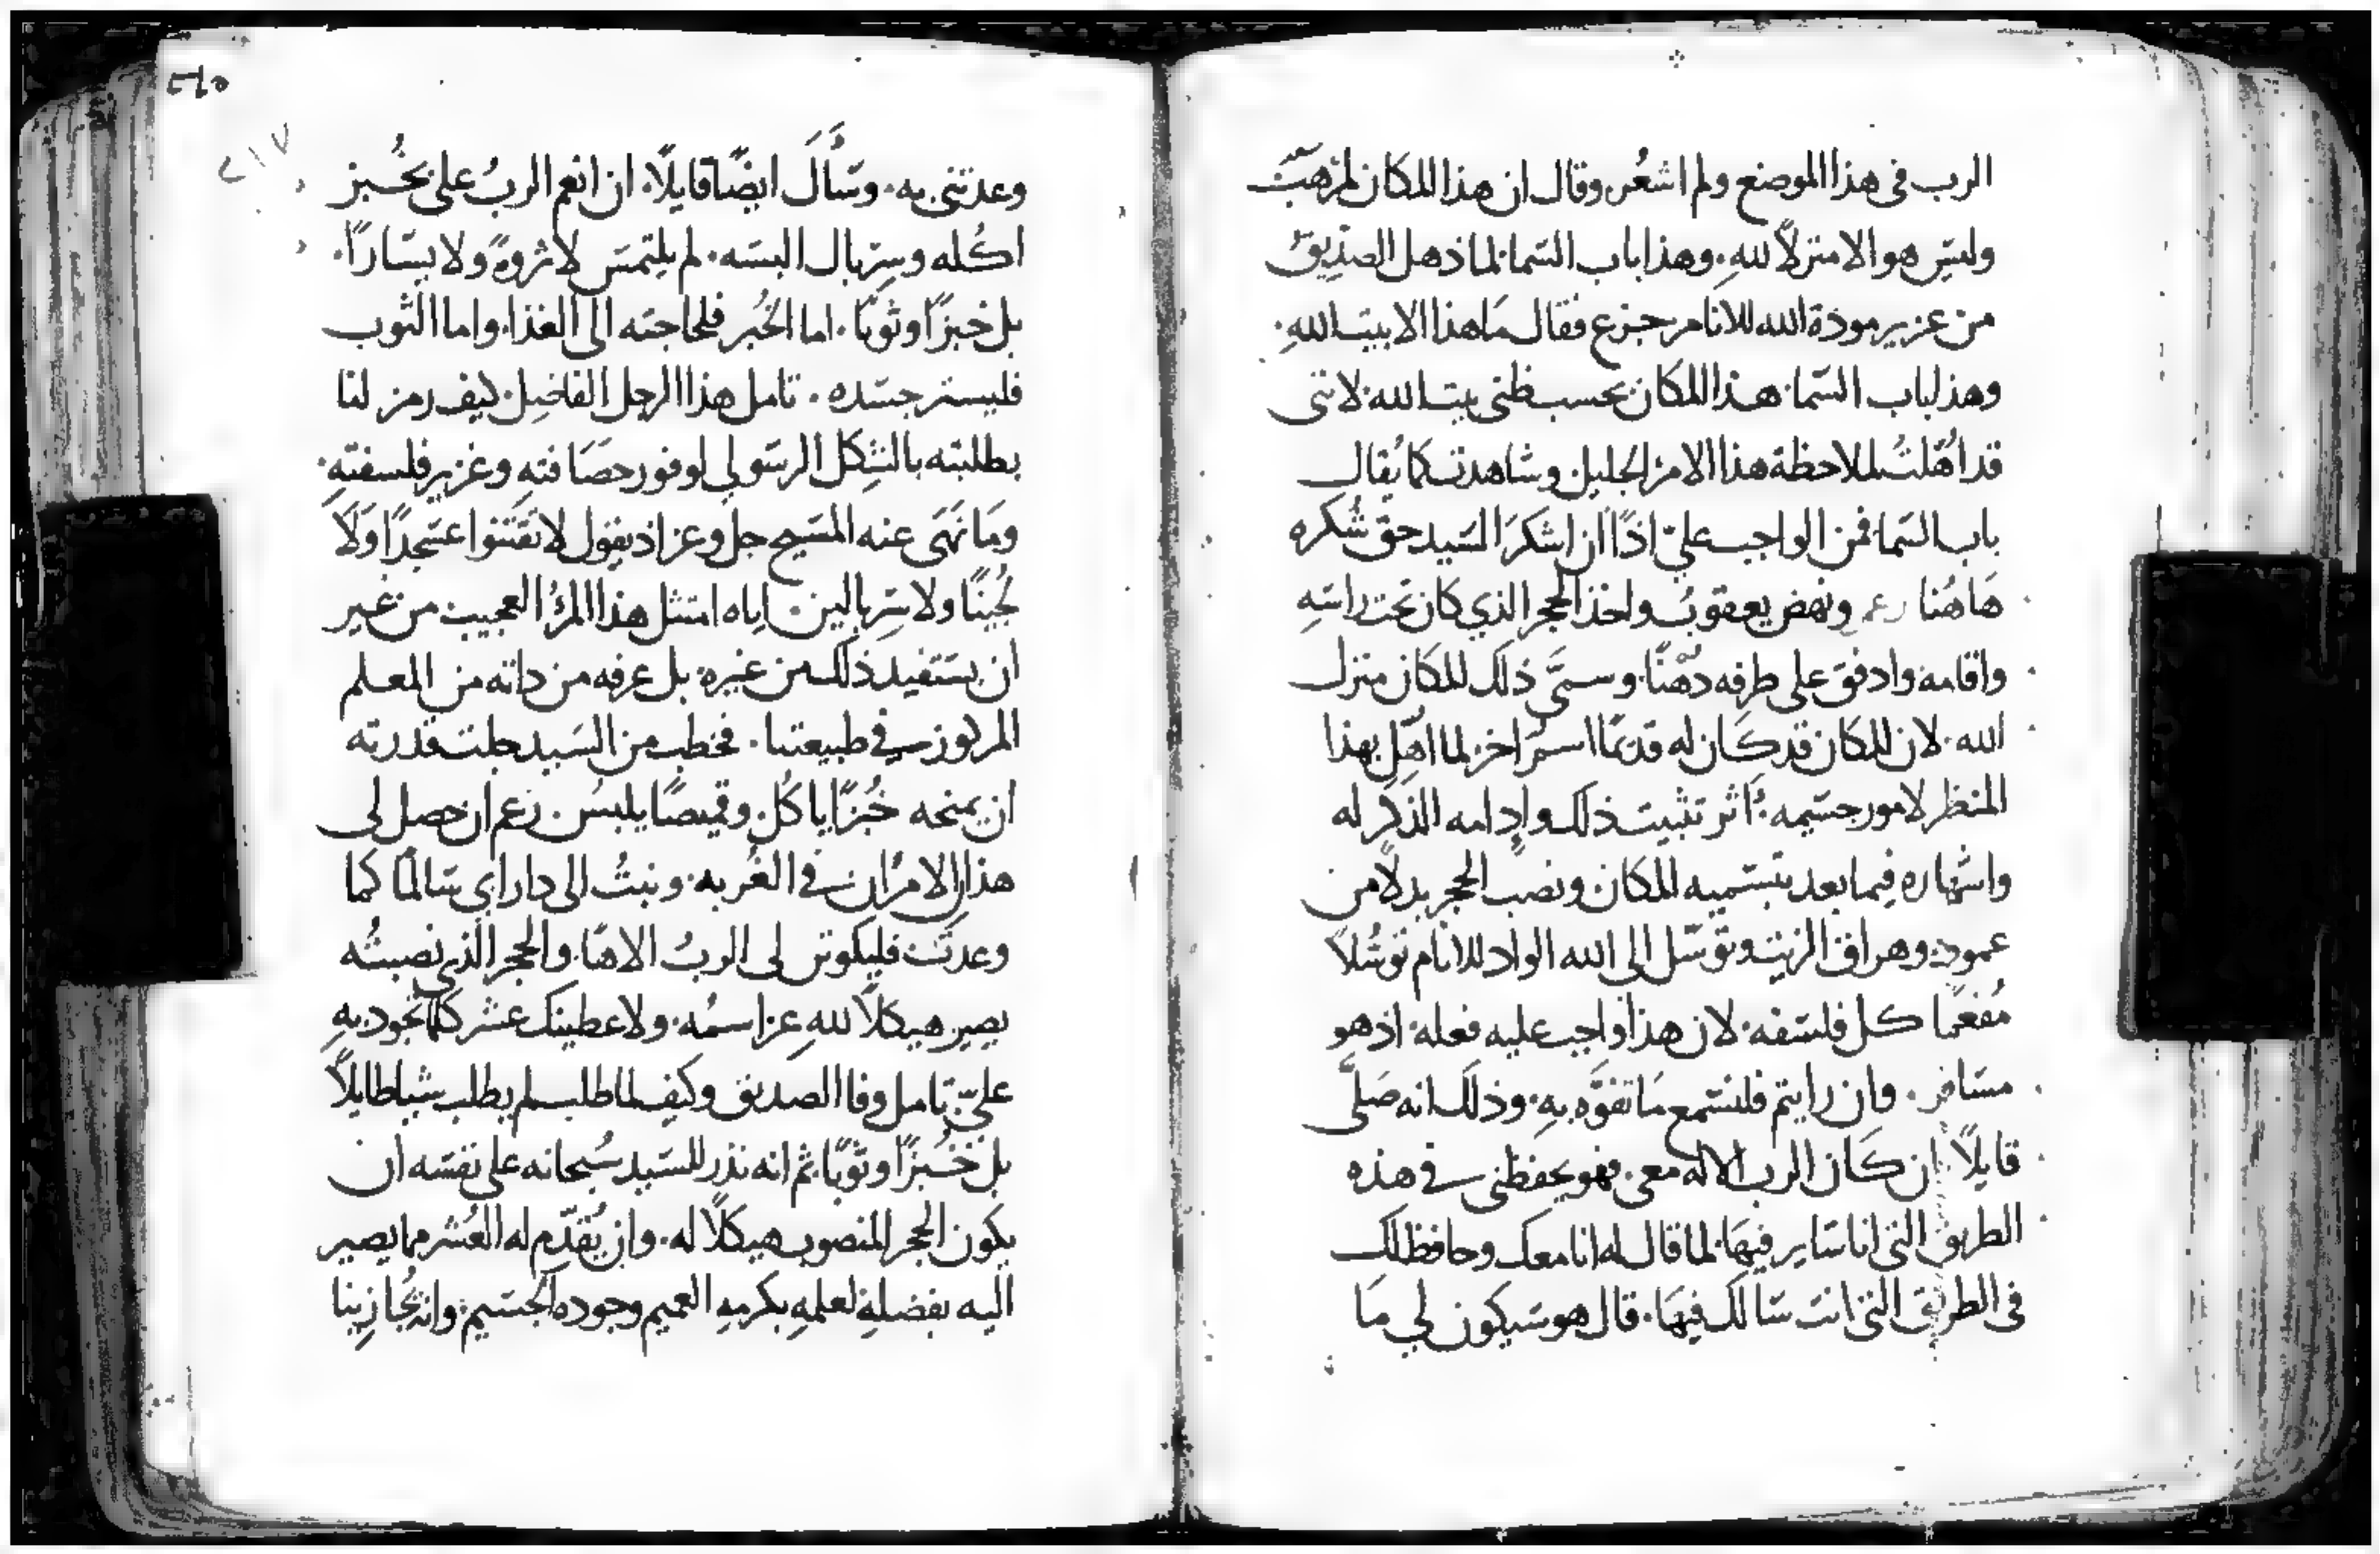 الرب في هذا الموضع ولم اشعُر وقال ان هذا المكان لمرهبٌ
وليس هو الا منزلاً للهِ. وهذا باب السَما لما ذهل الصدّيقُ
من عزير مودة الله للانام جزع فقال مَا هذا الا بيت اللهِ.
وهذا باب السَما هذا المكان بحسب ظني بيت الله لانني
قد اُهّلتُ لملاحظة هذا الامر الجليل وشاهدت كما يُقال
باب السَما فمن الواجب عليّ اذًا ان اشكرَ السَيد حق شُكره
هَاهُنا زعم ونهض يعقوبُ واخذ الحجر الذي كان تحت راسَهِ
واقامه وادفق على طرفه دُهْنًا. وسمَّى ذلك المكان منزل
الله. لان المكان قد كَان له قديمًا اسمُ اخر لما اُهّل بهذا
المنظر لامور جسَيمه اَثر تثبيت ذلك وإدامه الذكر له
واشهاره فيما بعد بتسَميه المكان ونصب الحجر بدلاً من
عمودٍ وهراق الزيت وتوسَل الى الله الواد للانام توسُلاً
مُفعمًا كل فلسَفه لان هذا واجب عليه فعله اذ هو
مسَافر. وان رايتم فلنسَتمع مَا تفوَّه بهِ. وذلك انه صَلَّى
قايلاً ان كَان الرب الاله معي فهو يحفظني في هذه
الطريق التي انا سَاير فيهَا لما قال له انا معك وحافظ لك
في الطريق التي انت سَالك فيهَا. قال هو سَيكون لي مَا
٢١٥
٢١٧
وعدتني به. وسَأَلَ ايضًا قايلاً. ان انعم الربُ على بخُبز
اكُله وسِربال البسَه. لم يلتمسَ لا ثروةً ولا يسَارًا.
بل خبزًا وثوبًا. اما الخُبر فلحاجته الى الغذا واما الثوب
فليستر جسَده. تامل هذا الرجل الفاضِل كيف رمز لنا
بطلبته بالشِكل الرسَولي لوفور حصَافته وغزير فلسفتهِ.
ومَا نَهَى عنه المسَيح جل وعز اذ يقول لا تقتنوا عسَجدًا وَلاَ
لُجينًا ولا سِربالين. اياه امتثل هذا المرُ العجيب من غير
ان يسَتفيد ذلك من غيره بل عرفه من داته من المعلم
المركوز في طبيعتنا. فخطب من السَيد جلت قدرته
ان يمنحه خُبزًا ياكُل وقميصًا يلبسُ. زعم ان حصل لي
هذان الامرَان في الغُربه. وثبتُ الى دار ابي سَالمًا كما
وعدتَ فليكونن لي الربُ الاهًا. والحجر الذي نصبتُه
يصير هيكلاً للهِ عز اسمُه. ولاعطينك عشر كلما تجود بهِ
عليّ تامل وفا الصديق وكيف لما طلب لم يطلب شيا طايلاً
بل خُبزًا وثوبًا ثم انه نذر للسَيد سُبحانه على نفسَه ان
يكون الحجر المنصوب هيكلاً له. وان يُقدّم له العُشر مما يصير
اليه بفضلهِ لعلمهِ بكرمهِ العميم وجوده الجسَيم وانه يُجازينا